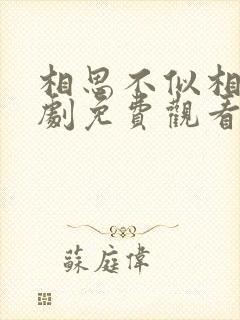 相思不似相
劇免費觀看
蘇庭偉